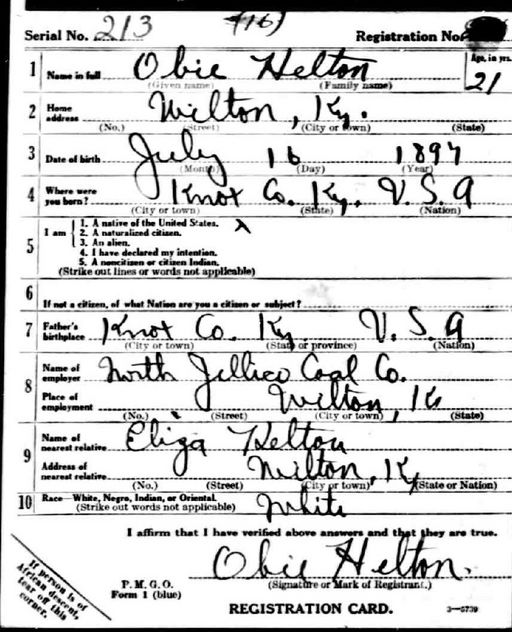 Serial No. 213 (16) Registration No.
1 Name in full Obie Helton Age, in yrs. 21
(Given name) (Family name)
2 Home address Wilton, Ky.
(No.) (Street) (City or town) (State)
3 Date of birth July 16 1897
(Month) (Day) (Year)
4 Where were you born? Knox Co. Ky. U. S. A
(City or town) (State) (Nation)
5 I am
1. A native of the United States. x
2. A naturalized citizen.
3. An alien.
4. I have declared my intention.
5. A noncitizen or citizen Indian.
(Strike out lines or words not applicable)
6 If not a citizen, of what Nation are you a citizen or subject?
7 Father's birthplace Knox Co. Ky. U. S. A
(City or town) (State or province) (Nation)
8 Name of employer North Jellico Coal Co.
Place of employment Wilton, K
(No.) (Street) (City or town) (State)
9 Name of nearest relative Eliza Helton
Address of nearest relative Wilton, Ky
(No.) (Street) (City or town) (State or Nation)
10 Race—White, Negro, Indian, or Oriental. White
(Strike out words not applicable)
I affirm that I have verified above answers and that they are true.
Obie Helton.
P. M. G. O.
Form 1 (blue)
(Signature or Mark of Registrant.)
REGISTRATION CARD. 3—5739
If person is of
African descent,
tear off this
corner.